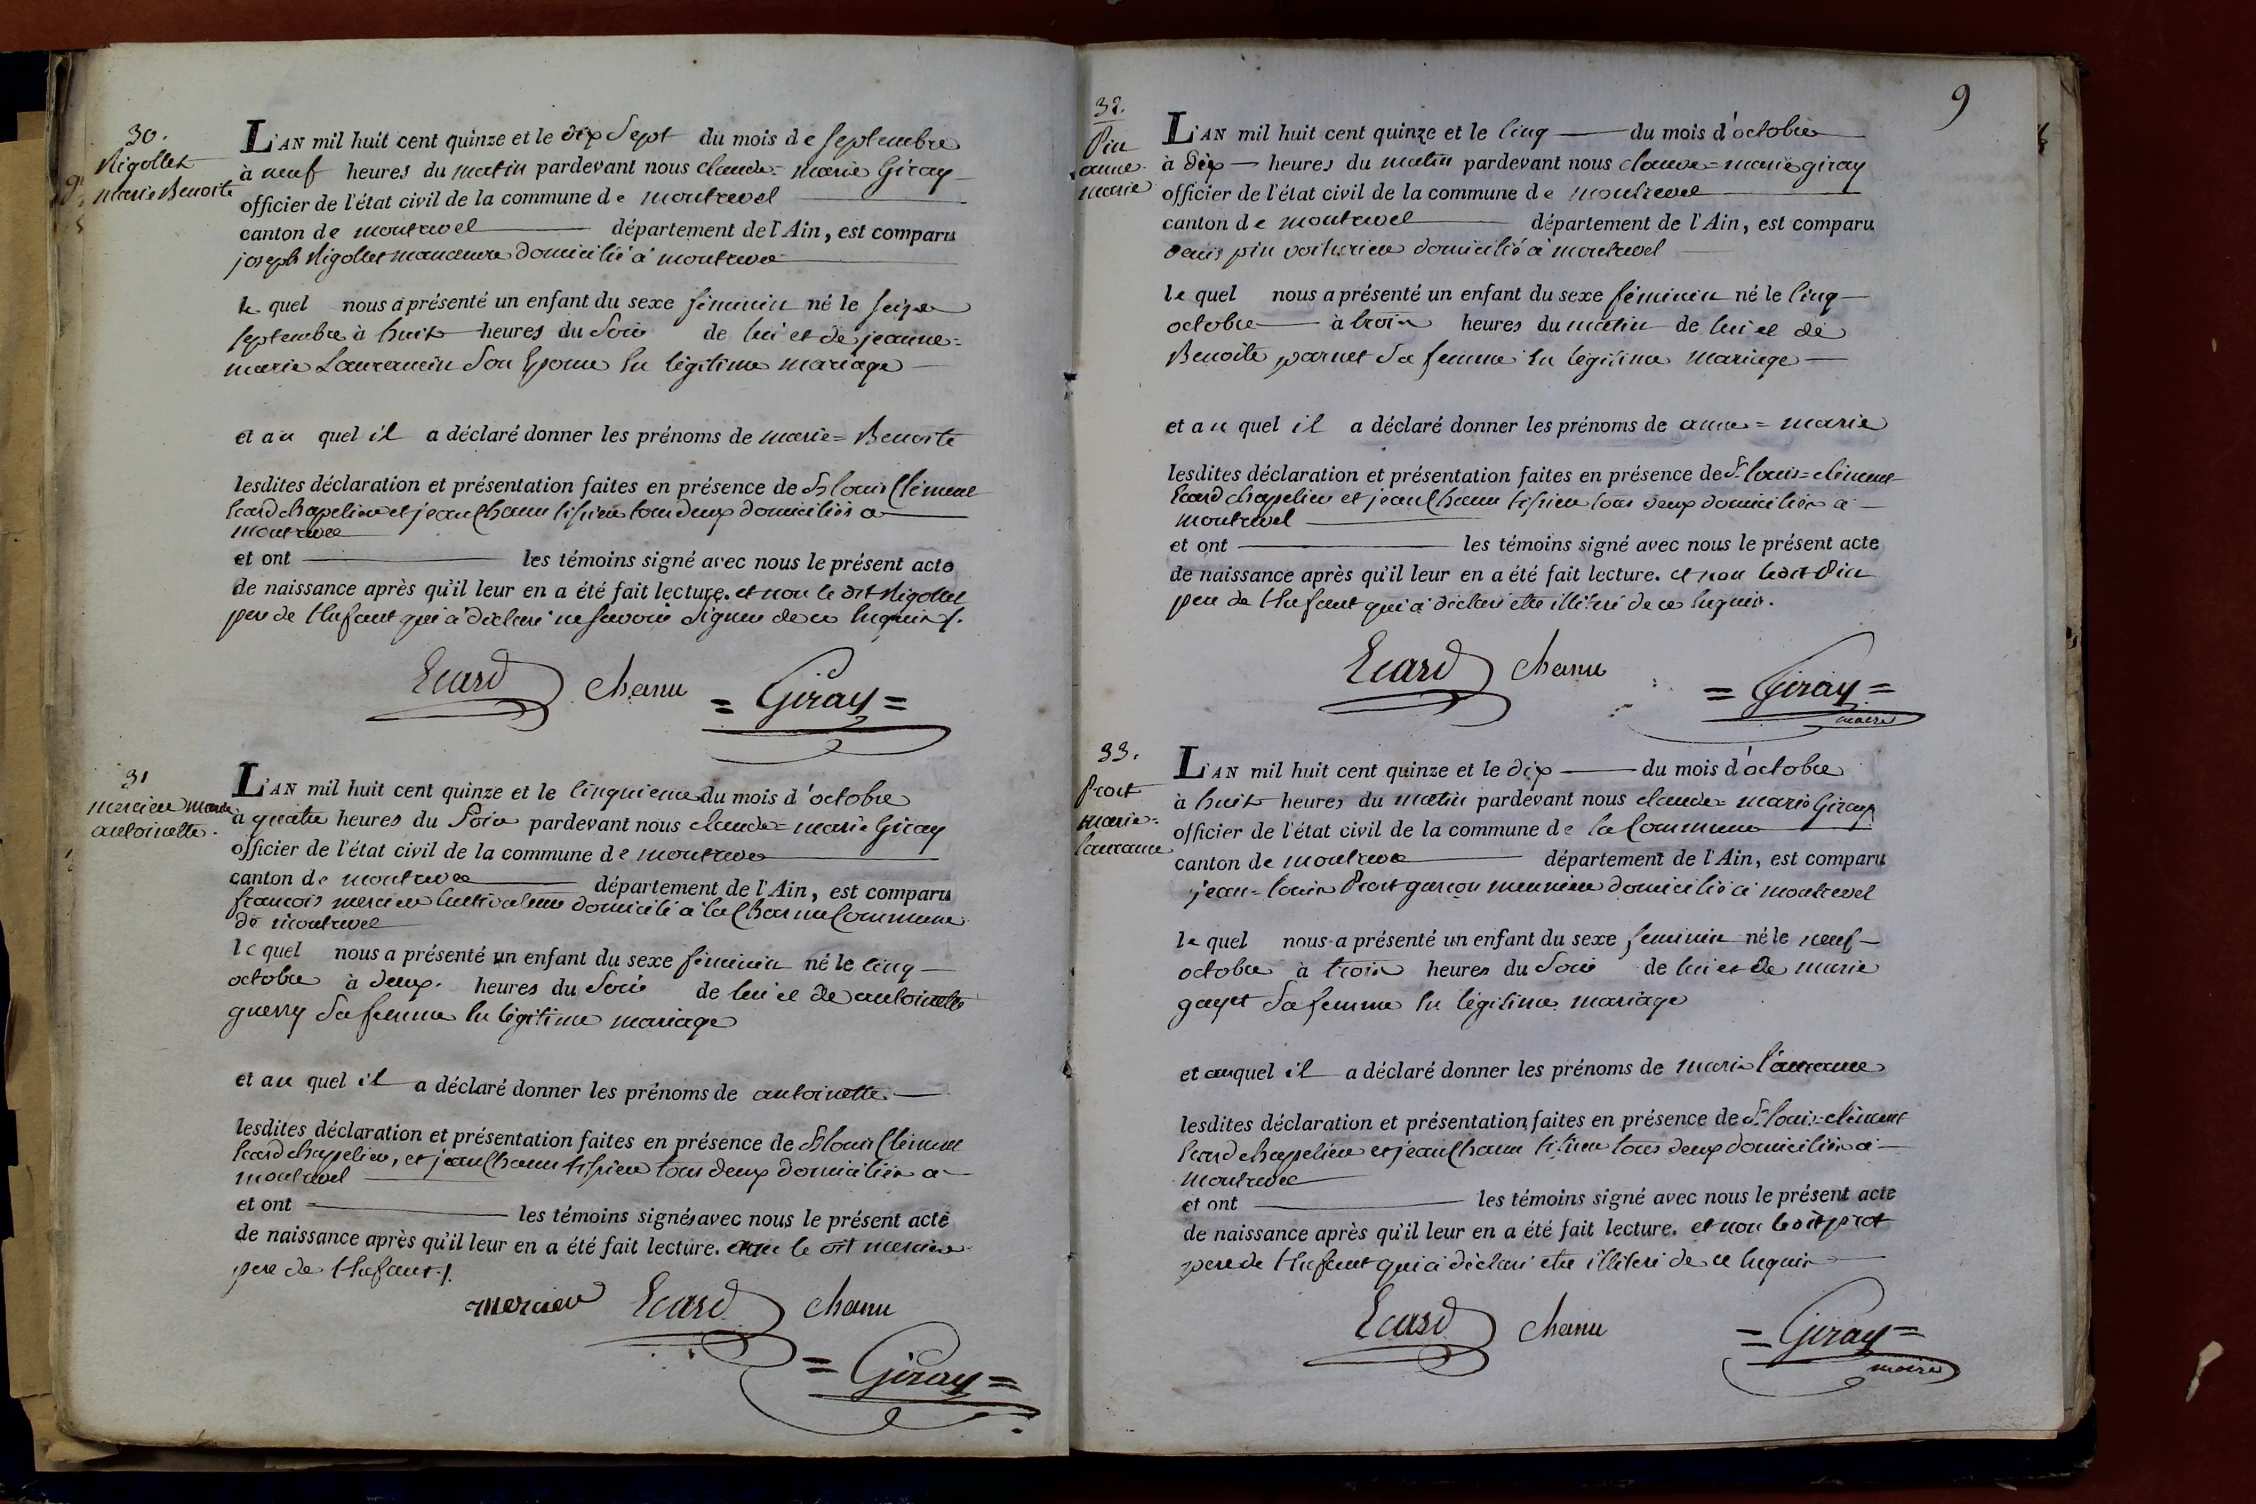 30.
Nigollet
marie Benoite
L'AN mil huit cent quinze et le dix Sept du mois de Septembre
à neuf heures du matin pardevant nous claude=marie Giray
officier de l'état civil de la commune de montrevel
canton de montrevel département de l'Ain, est comparu
joseph Nigollet manœuvre domicilié à montrevel
le quel nous a présenté un enfant du sexe féminin né le Seize
Septembre à huit heures du Soir de lui et de jeanne=
marie Laurancin Son Epouse En légitime mariage
et au quel il a déclaré donner les prénoms de marie=Benoite
lesdites déclaration et présentation faites en présence de Sr louis Clément
Ecard chapelier et jean Chanu tissier tous deux domiciliés a
montrevel
et ont les témoins signé avec nous le présent acte
de naissance après qu'il leur en a été fait lecture. et non le dit Nigollet
pere de l'Enfant qui à déclaré ne Savoir Signer de ce Enquis /.
Ecard chanu =Giray=
31
mercier marie
antoinette.
L'AN mil huit cent quinze et le Cinquieme du mois d'octobre
à quatre heures du Soir pardevant nous claude=marie Giray
officier de l'état civil de la commune de montrevel
canton de montrevel département de l'Ain, est comparu
francois mercier Cultivateur domicilié à la Commune
de montrevel
le quel nous a présenté un enfant du sexe féminin né le Cinq
octobre à deux heures du Soir de lui et de antoinette
guerry Sa femme En légitime mariage
et au quel il a déclaré donner les prénoms de antoinette
lesdites déclaration et présentation faites en présence de Sr louis Clément
Ecard chapelier, et jean Chanu tissier tous deux domiciliés a
montrevel
et ont les témoins signés avec nous le présent acte
de naissance après qu'il leur en a été fait lecture. le dit mercier
pere de l'Enfant /.
mercier Ecard chanu
=Giray=
9
32.
Pin
anne
marie
L'AN mil huit cent quinze et le Cinq du mois d'octobre
à dix heures du matin pardevant nous claude=marie giray
officier de l'état civil de la commune de montrevel
canton de montrevel département de l'Ain, est comparu
denis pin voiturier domicilié à montrevel
le quel nous a présenté un enfant du sexe féminin né le Cinq
octobre à trois heures du matin de lui et de
Benoite parnet Sa femme En légitime mariage
et au quel il a déclaré donner les prénoms de anne=marie
lesdites déclaration et présentation faites en présence de Sr louis=clément
Ecard chapelier et jean Chanu tissier tous deux domiciliés a
montrevel
et ont les témoins signé avec nous le présent acte
de naissance après qu'il leur en a été fait lecture. et non ledit Pin
pere de l'Enfant qui a déclaré etre illitéré de ce Enquis.
Ecard chanu =Giray=
maire
33.
Prost
marie=
lauranne
L'AN mil huit cent quinze et le dix du mois d'octobre
à huit heures du matin pardevant nous claude=marie Giray
officier de l'état civil de la commune de la Commune
canton de montrevel département de l'Ain, est comparu
jean=louis Prost garçon meunier domicilié à montrevel
le quel nous a présenté un enfant du sexe feminin né le neuf
octobre à trois heures du Soir de lui et de marie
gayet Sa femme En légitime mariage
et auquel il a déclaré donner les prénoms de marie lauranne
lesdites déclaration et présentation faites en présence de Sr louis=clément
Ecard chapelier et jean Chanu tissier tous deux domiciliés a
montrevel
et ont les témoins signé avec nous le présent acte
de naissance après qu'il leur en a été fait lecture. et non ledit prost
pere de l'Enfant qui a déclaré etre illiteré de ce Enquis
Ecard chanu =Giray=
maire